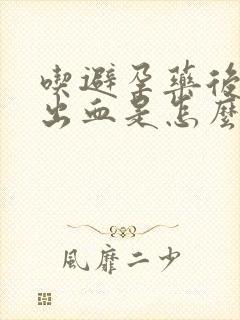 喫避孕藥後
出血是怎麼
風靡二少